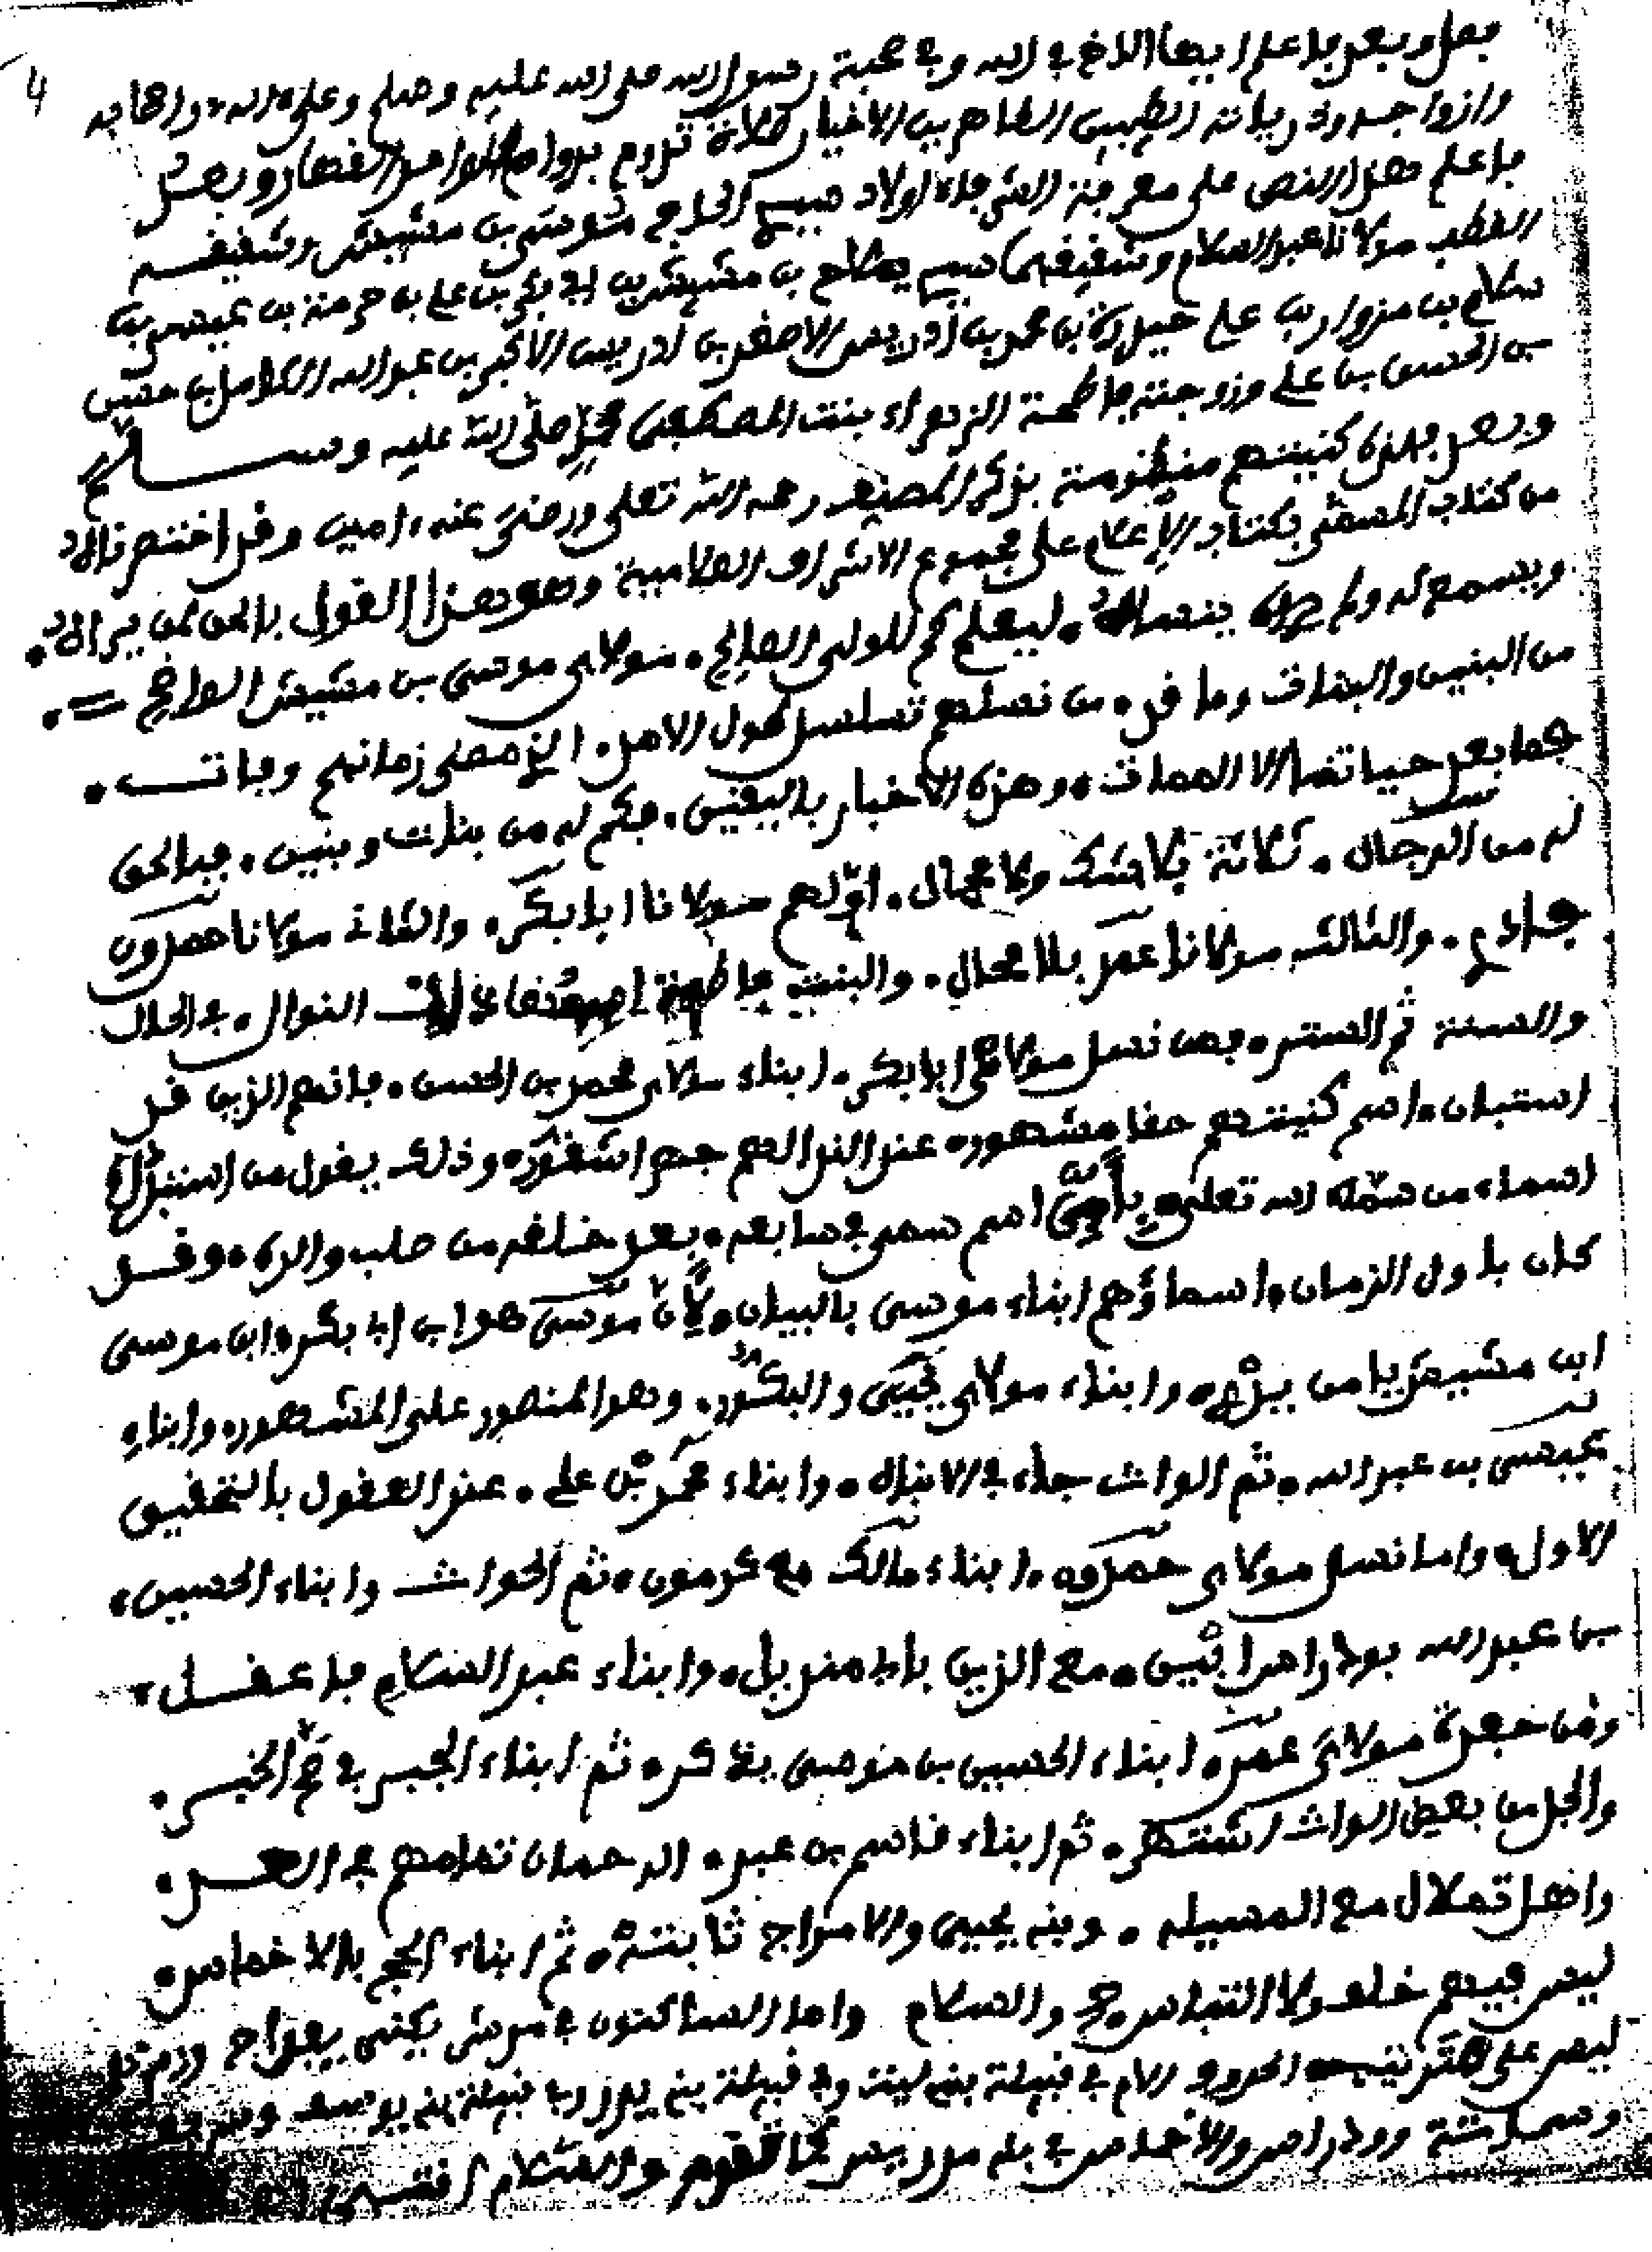 4
فصل وبعد فاعلم ايها الاخ في الله وفي محبة رسول الله صلى الله عليه وسلم وعلى ءاله واصحابه
وازواجه وذرياته الطيبين الطاهرين الاخيار صلاة تدوم بدوام الواحد القهار وبعد
فاعلم هذا النص على معرفة الشرفاء اولاد سيدي الحاج موسى بن مشيش وشقيقه
القطب مولانا عبد السلام وشقيقهما سيدي يملاح بن مشيش بن ابي بكر بن علي بن حرمة بن عيسى بن
سلام بن مزوار بن علي حيدرة بن محمد بن ادريس الاصغر بن ادريس الاكبر بن عبد الله الكامل بن حسن
بن الحسن بن علي وزوجته فاطمة الزهراء بنت المصطفى محمد صلى الله عليه وسلم
وهم بهذه كنيتهم منظومة بذكر المصنف رحمه الله تعلى ورضي عنه ءامين وقد اختصرنا
من كتاب المسمى بكتاب الاعلام على مجموع الاشراف العلامية وهو هذا القول بالحق لمن يراه
ويسمعه وله ينساه. ليعلم كم للولي الصالح. مولاي موسى بن مشيش الواضح =.
من البنين والبنات وما قد. من نسلهم تسلسل طول الامد. الذ مضى زمانهم وفات.
فما بعد حياتنا الا الممات. وهذه الاخبار باليقين. فكم له من بنات وبنين. فبالحق
له من الرجال. ثلاثة بلا شك ولا محال. اولهم مولانا ابابكر. والثاني مولانا حمدون
جادي. والثالث مولانا عمر بلا محال. والبنت فاطمة النوال. في الحلال
والسنة ثم الستر. فمن نسل مولاي ابابكر. ابناء مولاي محمد بن الحسن. فانهم الذين قد
استبان. اسم كنيتهم حقا مشهور. عند الذ الهم جمع اشقور. وذلك يقول من استنزل
اسماء من سمه الله تعلى. باي اسم سمي في سابعه. بعد خلفه من صلب والده. وقد
كان باول الزمان. اسماؤهم ابناء موسى بالبيان. لان موسى هو ابن ابي بكر. ابن موسى
ابن مشيش يا من يدر. وابناء مولاي يحيى والبكور. وهو المنصور على المشهور. وابناء
عيسى بن عبد الله. ثم الواث جاء في الانباه. وابناء محمد بن علي. عند العقول بالتحقيق
الاول. واما نسل مولاي حمدون. ابناء مالك مع كرمون. ثم الحواث وابناء الحسين.
بن عبد الله بودار اهرائين. مع الذين بابي منزيل. وابناء عبد السلام فاعقل.
ومن حفدة مولاي عمر. ابناء الحسين بن موسى يذكر. ثم ابناء الجبر في حي الخبر.
والجل من بعض الواث اشتهر. ثم ابناء قاسم بن عبد. الرحمان تمامهم في العد.
واهل تملال مع المسيله. وبني يحيى والامراج ثابته. ثم ابناء الحج بالاخماس.
ليس فيهم خلف ولا التباس. صح والسلام واما الساكنون في مرسى يكنى
ليس على الحدود في قبيلة بني ليث وفي قبيلة بني يدر وفي قبيلة بني يوسف
وسماتة وودراس والاخماس في والسلام انتهى